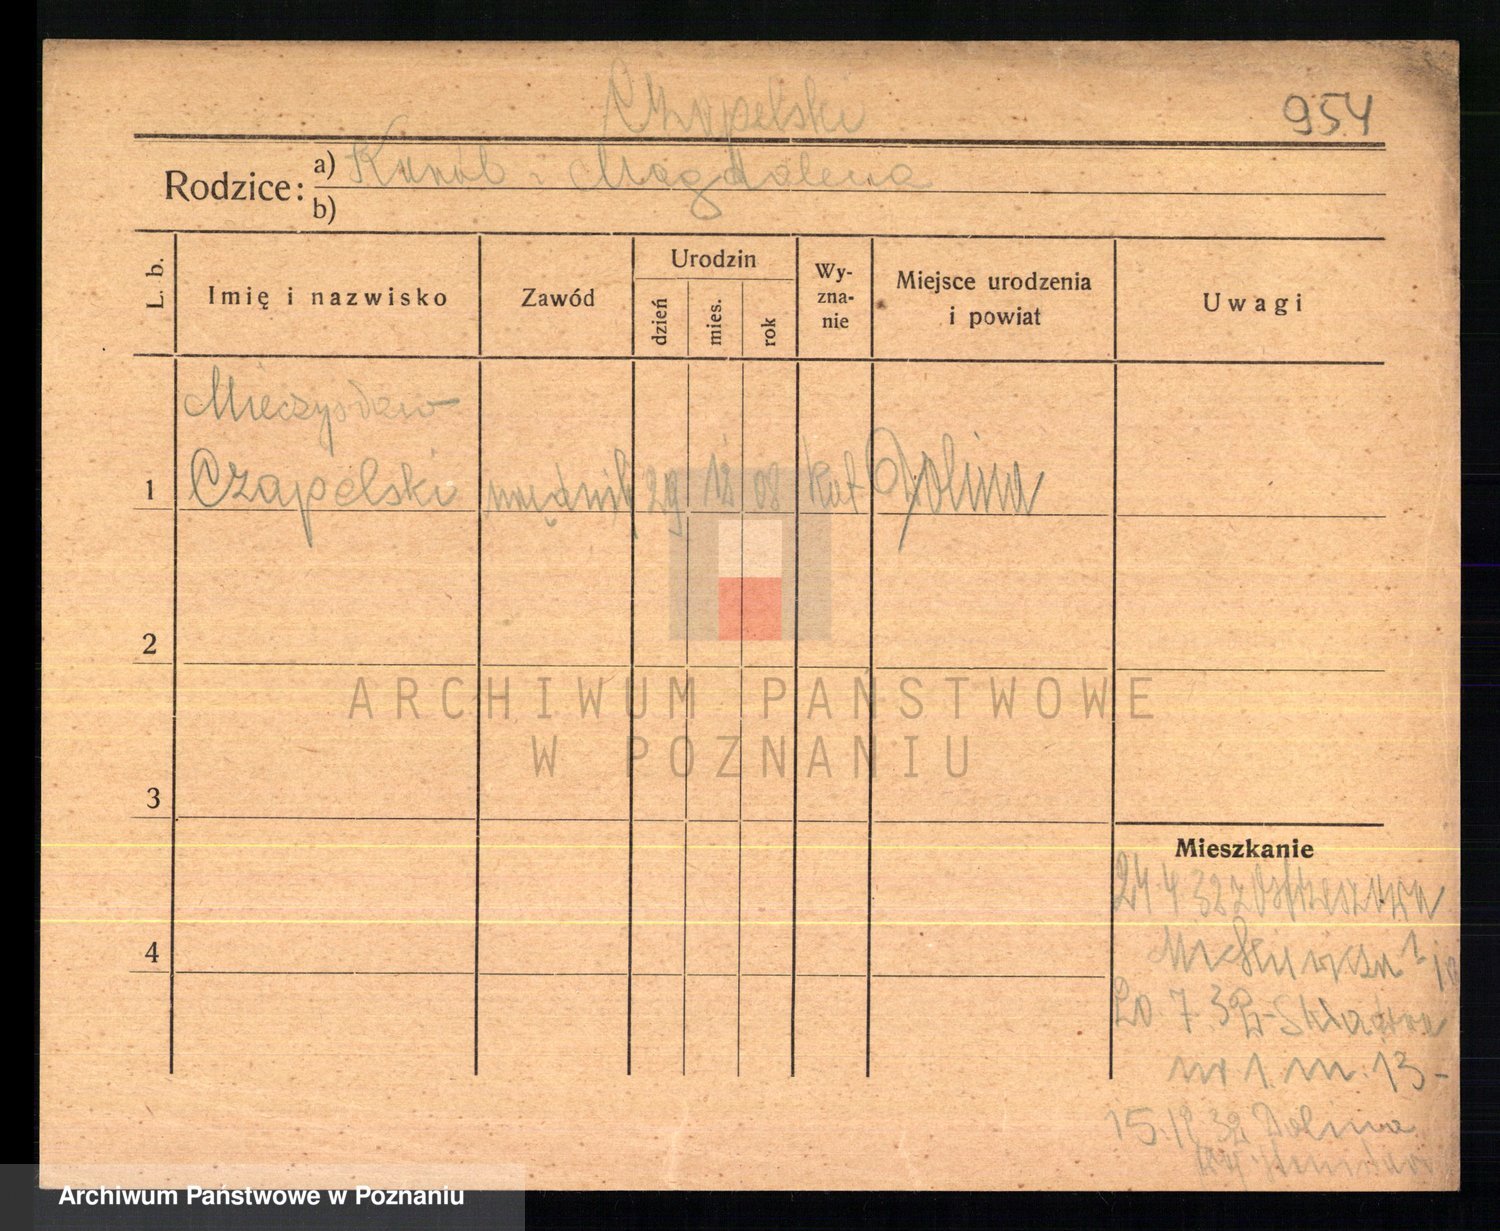 Czapelski
954
Rodzice: a) Karol i Magdalena
b)
L. b.
Imię i nazwisko
Zawód
Urodzin
dzień
mies.
rok
Wy-
zna-
nie
Miejsce urodzenia
i powiat
Uwagi
Mieczysław
1 Czapelski urzędnik 29 12 08 kat Dolina
2
3
4
Mieszkanie
24.4 32 z Ostrzeszowa
20 7. 32 - Składowa
nr 1. m. 13 -
15.12 32 Dolina
ARCHIWUM PAŃSTWOWE
W POZNANIU
Archiwum Państwowe w Poznaniu